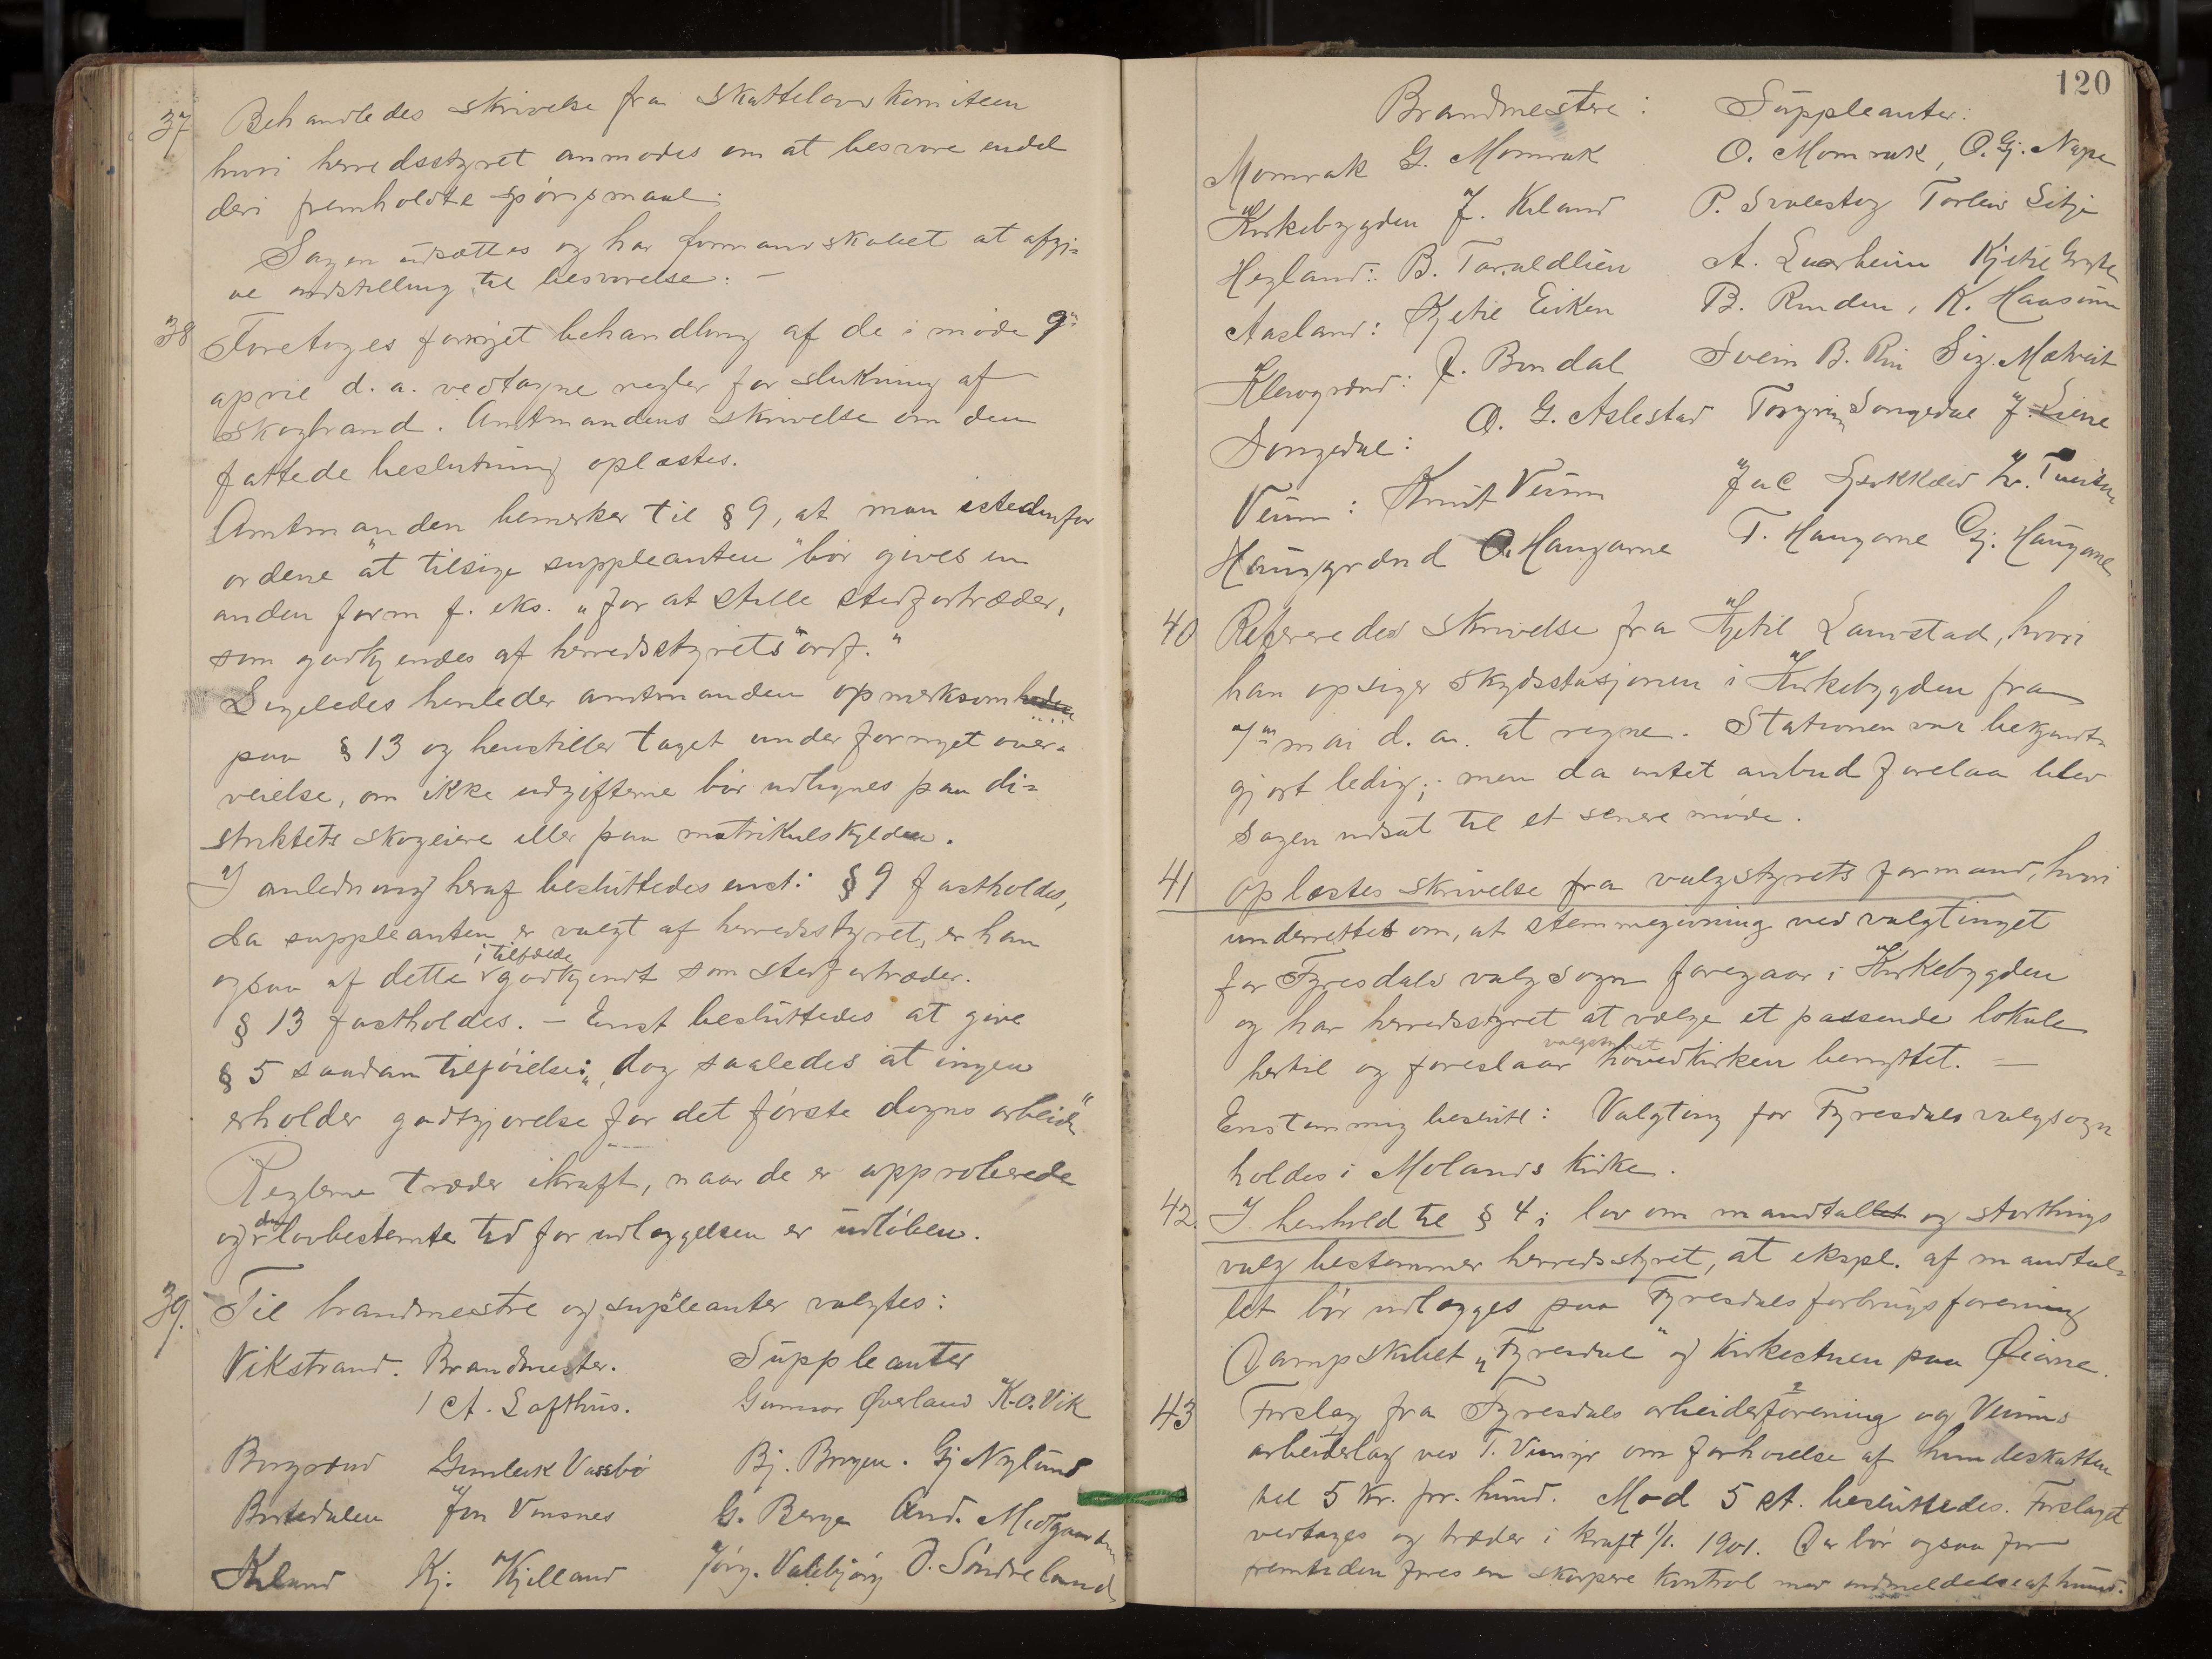 37 Behandledes skrivelse fra skattelovskomiteen
hvori herredsstyret anmodes om at besvare endel
deri fremholdte spørgsmaal.
Sagen udsættes og har formandskabet at afgi-
ve indstilling til besvarelse. —
38 Foretoges fornyet behandling af de i møde 9de
april d. a. vedtagne regler for slukning af
skogbrand. Amtmandens skrivelse om den
fattede beslutning oplæstes.
Amtmanden bemerker til § 9, at man istedenfor
ordene "at tilsige suppleanten" bør gives en
anden form f. eks. "for at stille stedfortræder,
som godkjendes af herredsstyrets ordf."
Ligeledes henleder amtmanden opmerksomheden
paa § 13 og henstiller taget under fornyet over-
veielse, om ikke udgifterne bør udlignes paa di-
striktets skogeiere eller paa matrikulskylden.
I anledning heraf besluttedes enst: § 9 fastholdes,
da suppleanten er valgt af herredsstyret, er han
ogsaa af dette i tilfælde godkjendt som stedfortræder.
§ 13 fastholdes. — Enst besluttedes at give
§ 5 saadan tilføielse: "dog saaledes at ingen
erholder godtgjørelse for det første døgns arbeide"
Reglerne træder ikraft, naar de er approberede
og den lovbestemte tid for udlæggelsen er udløben.
39. Til brandmestre og suppleanter valgtes:
Vikstrand. Brandmester. Suppleanter
1 A. Lofthus. Gunnar Øverland K. O. Vik
Borgrønd Gunleik Vassbø Bj. Borgen. Gj Nylund
Børtedalen Jon Vonsnes G. Berge And. Midtgaarden
Kiland Kj. Kjelland Jørg. Valebjørg O. Søndreland
120
Brandmestere: Suppleanter:
Momrak G. Momrak O. Momrak, O. Gj. Nape
Kirkebygden J. Kiland P. Svalestog Torleiv Sitje
Hegland: B. Taraldlien A. Kjetil
Aasland: Kjetil Eiken B. Rinden, K. Haasum
Klevgrænd: J. Bondal Svein B. Rui Sig. Molveit
Songedal: O. G. Aslestad Torgrim Songedal J. Liene
Veum: Knut Veum Jac H. Tveiten
Hauggrænd O. Haugarne T. Haugarne Gj. Haugarne
40 Refereredes skrivelse fra Kjetil Lauvstad, hvori
han opsiger skydsstasjonen i Kirkebygden fra
1ste mai d. a. at regne. Stationen var bekjendt-
gjort ledig; men da intet anbud forelaa blev
sagen udsat til et senere møde.
41 Oplæstes skrivelse fra valgstyrets formand, hvori
underrettet om, at stemmegivning ved valgtinget
for Fyresdals valgsogn foregaar i Kirkebygden
og har herredsstyret at vælge et passende lokale
hertil og foreslaar valgstyret hovedkirken benyttet. —
Enstemmig beslutt: Valgting for Fyresdals valgsogn
holdes i Molands kirke.
42. I henhold til § 4 i lov om mandtallet og storthings
valg bestemmer herredsstyret, at ekspl. af mandtal-
let bør udlægges paa Fyresdals forbrugsforening
Dampskibet "Fyresdal" og Kirkestuen paa Øierne.
43 Forslag fra Fyresdals arbeiderforening og Veums
arbeiderlag ved T. om forhøielse af hundeskatten
til 5 Kr. pr. hund. Mod 5 st. besluttedes. Forslaget
vedtages og træder i kraft 1/1. 1901. Der bør ogsaa for
fremtiden føres en skarpere kontrol med indmeldelse af hund.